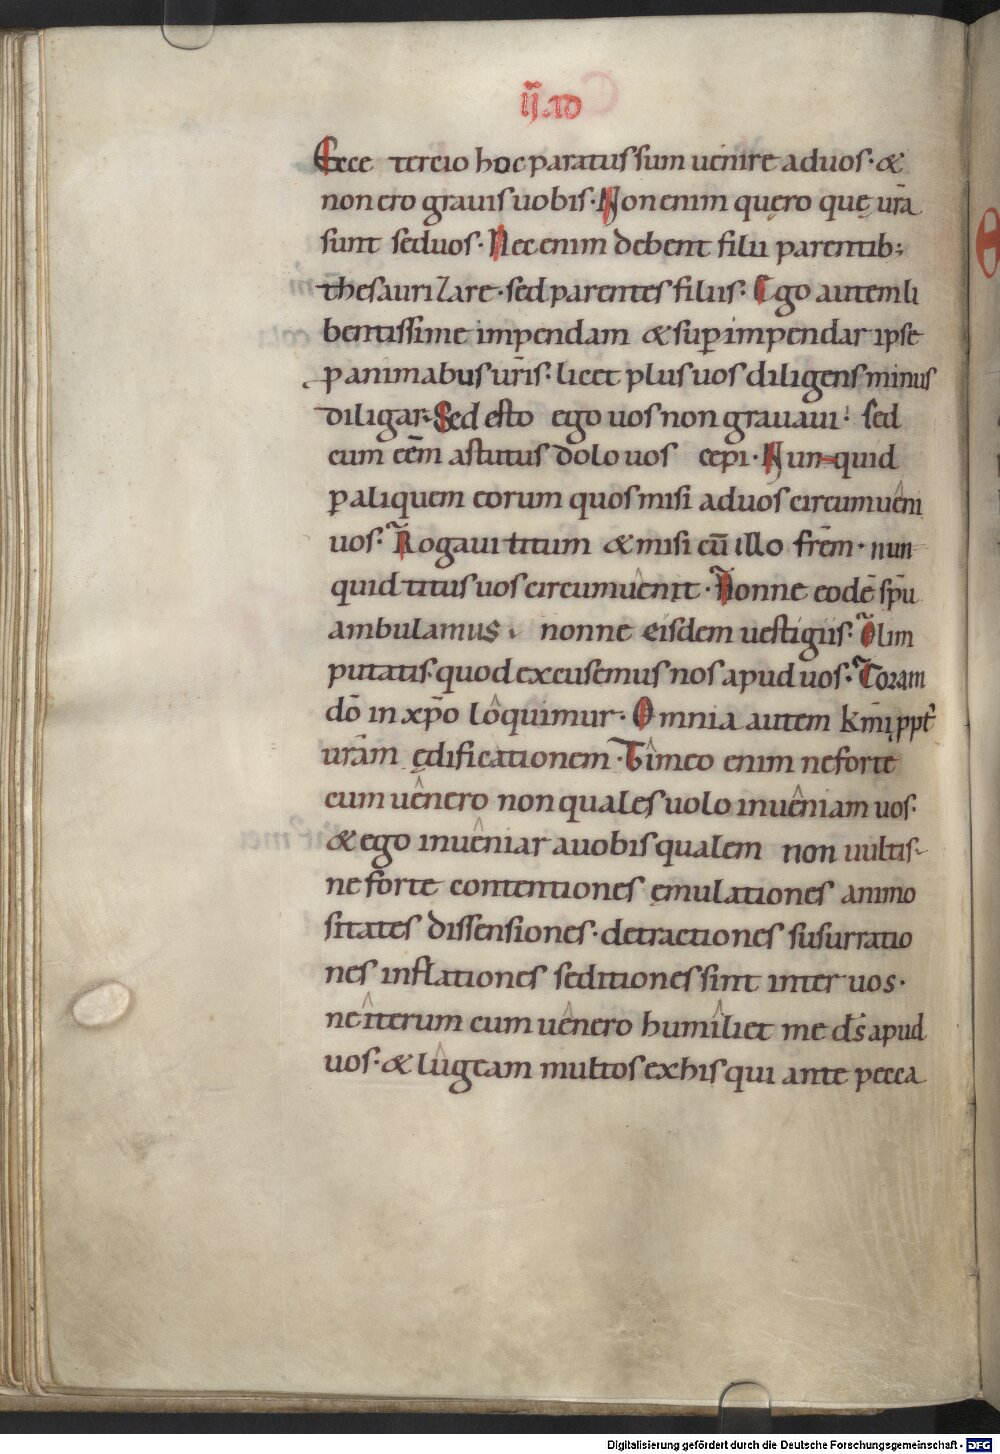 IĪ. AD
Ecce tercio hoc paratus sum uenire ad uos · &
non ero grauis uobis · Non enim quęro quę ur̄a
sunt sed uos · Nec enim debent filii parentib;
thesaurizare · sed parentes filiis · Ego autem li
bentissime impendam & sup̄impendar ipse
ꝑ animabus ur̄is · licet plus uos diligens minus
diligar · Sed esto ego uos non grauaui · sed
cum eēm astutus dolo uos cepi · Nun quid
ꝑ aliquem eorum quos misi ad uos circumuêni
uos · Rogaui titum & misi cū illo fr̄em · nun
quid titus uos circumuênit · Nonne eodē sp̄u
ambulamus · nonne eisdem uestigiis · Olim
putatis · quod excusemus nos apud uos · Coram
dō in xp̄o lôquimur · Omnia autem km̄i ppt̄
ur̄am ędificationem · Tîmeo enim ne forte
cum uênero non quales uolo inuêniam uos ·
& ego inuêniar a uobis qualem non uultis ·
ne forte contentiones ęmulationes animo
sitates dissensiones · detractiones susurratio
nes inflationes seditiones sint inter uos ·
ne îterum cum uênero humîliet me d̄s apud
uos · & lûgeam multos ex his qui ante pecca
Digitalisierung gefördert durch die Deutsche Forschungsgemeinschaft - DFG